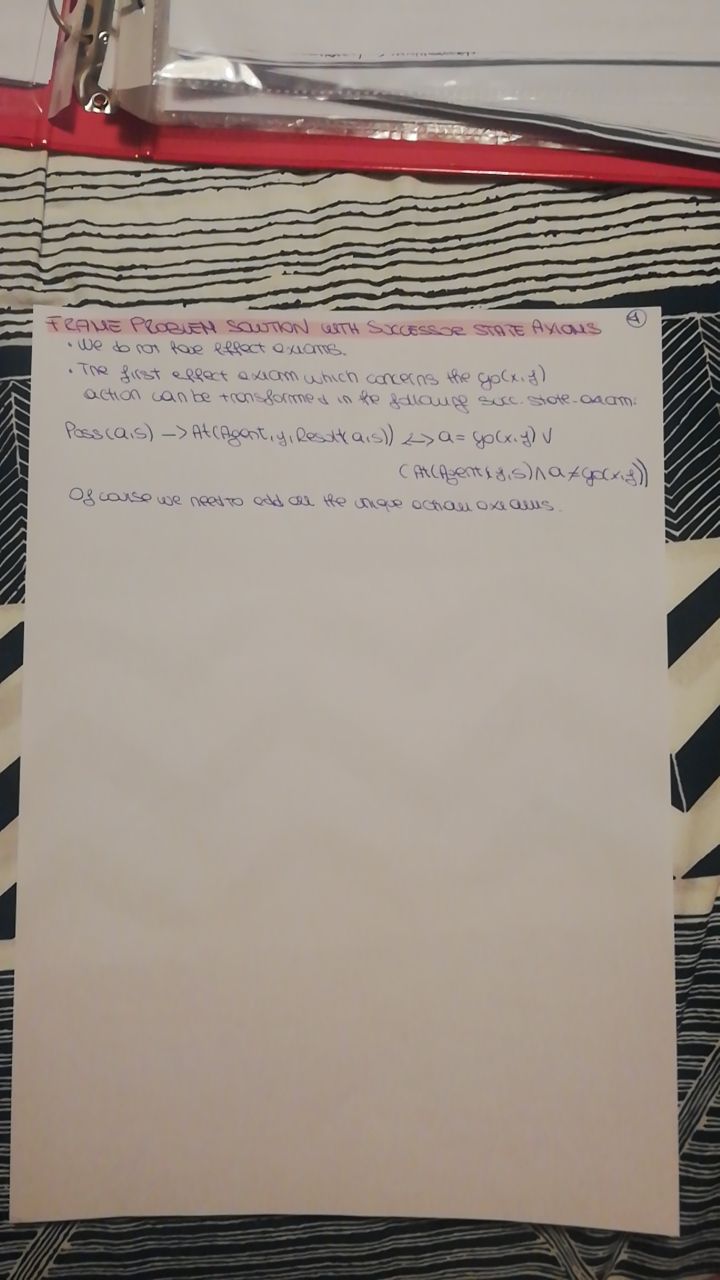 FRAME PROBLEM SOLUTION WITH SUCCESSOR STATE AXIOMS 4
• We do not have effect axioms.
• The first effect axiom which concerns the go(x,y)
action can be transformed in the following succ.-state-axiom:
Poss(a,s) —> At(Agent,y,Result(a,s)) <-> a = go(x,y) ∨
(At(Agent,y,s) ∧ a ≠ go(x,y))
Of course we need to add all the unique action axioms.